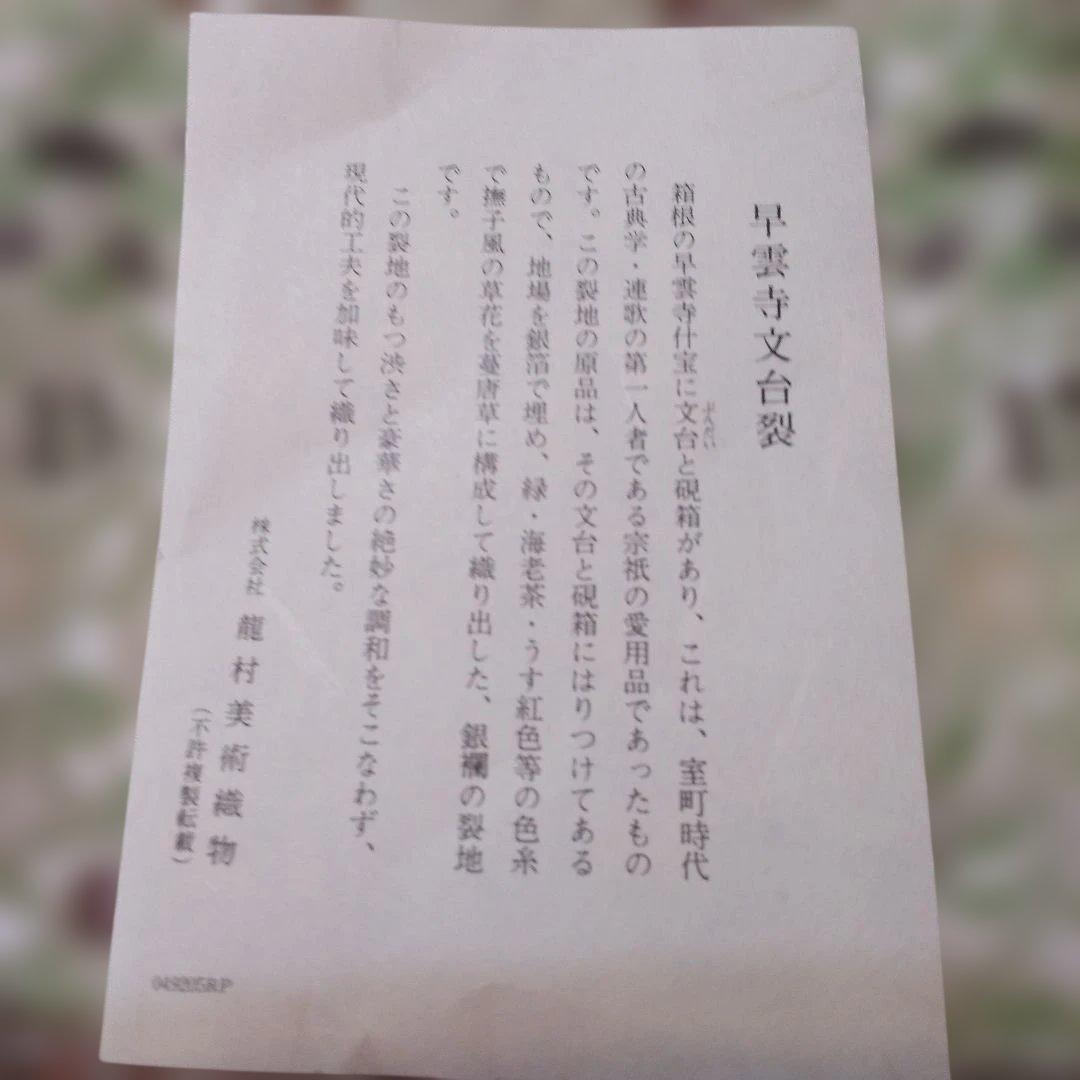 早雲寺文台裂
箱根の早雲寺什宝に文台と硯箱があり、これは、室町時代
ぶんだい
の古典学・連歌の第一人者である宗祇の愛用品であったもの
です。この裂地の原品は、その文台と硯箱にはりつけてある
もので、地場を銀箔で埋め、緑・海老茶・うす紅色等の色糸
で撫子風の草花を蔓唐草に構成して織り出した、銀襴の裂地
です。
この裂地のもつ渋さと豪華さの絶妙な調和をそこなわず、
現代的工夫を加味して織り出しました。
株式会社 龍村美術織物
(不許複製転載)
049205R.P